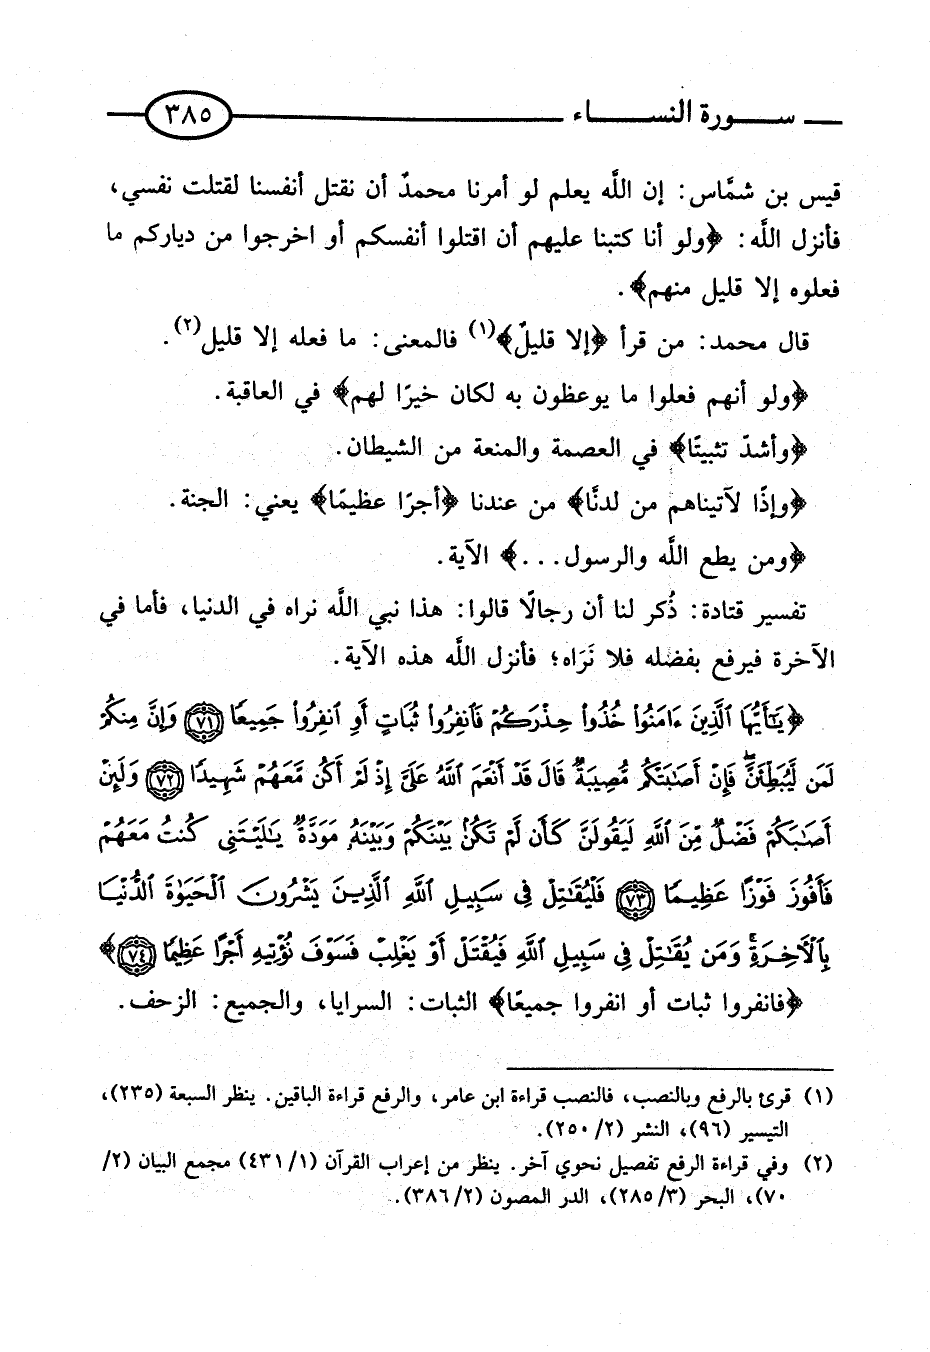 سورة النساء ٣٨٥
قيس بن شمَّاس: إن اللَّه يعلم لو أمرنا محمدٌ أن نقتل أنفسنا لقتلت نفسي،
فأنزل اللَّه: ﴿ولو أنا كتبنا عليهم أن اقتلوا أنفسكم أو اخرجوا من دياركم ما
فعلوه إلا قليل منهم﴾.
قال محمد: من قرأ ﴿إلا قليلٌ﴾(١) فالمعنى: ما فعله إلا قليل(٢).
﴿ولو أنهم فعلوا ما يوعظون به لكان خيرًا لهم﴾ في العاقبة.
﴿وأشدّ تثبيتًا﴾ في العصمة والمنعة من الشيطان.
﴿وإذًا لآتيناهم من لدنَّا﴾ من عندنا ﴿أجرًا عظيمًا﴾ يعني: الجنة.
﴿ومن يطع اللَّه والرسول...﴾ الآية.
تفسير قتادة: ذُكر لنا أن رجالًا قالوا: هذا نبي اللَّه نراه في الدنيا، فأما في
الآخرة فيرفع بفضله فلا نَرَاه؛ فأنزل اللَّه هذه الآية.
﴿يَٰٓأَيُّهَا ٱلَّذِينَ ءَامَنُوا۟ خُذُوا۟ حِذْرَكُمْ فَٱنفِرُوا۟ ثُبَاتٍ أَوِ ٱنفِرُوا۟ جَمِيعًا ٧١ وَإِنَّ مِنكُمْ
لَمَن لَّيُبَطِّئَنَّ ۖ فَإِنْ أَصَٰبَتْكُم مُّصِيبَةٌ قَالَ قَدْ أَنْعَمَ ٱللَّهُ عَلَىَّ إِذْ لَمْ أَكُن مَّعَهُمْ شَهِيدًا ٧٢ وَلَئِنْ
أَصَٰبَكُمْ فَضْلٌ مِّنَ ٱللَّهِ لَيَقُولَنَّ كَأَن لَّمْ تَكُنۢ بَيْنَكُمْ وَبَيْنَهُۥ مَوَدَّةٌ يَٰلَيْتَنِى كُنتُ مَعَهُمْ
فَأَفُوزَ فَوْزًا عَظِيمًا ٧٣ فَلْيُقَٰتِلْ فِى سَبِيلِ ٱللَّهِ ٱلَّذِينَ يَشْرُونَ ٱلْحَيَوٰةَ ٱلدُّنْيَا
بِٱلْـَٔاخِرَةِ ۚ وَمَن يُقَٰتِلْ فِى سَبِيلِ ٱللَّهِ فَيُقْتَلْ أَوْ يَغْلِبْ فَسَوْفَ نُؤْتِيهِ أَجْرًا عَظِيمًا ٧٤﴾
﴿فانفروا ثبات أو انفروا جميعًا﴾ الثبات: السرايا، والجميع: الزحف.
(١) قرئ بالرفع وبالنصب، فالنصب قراءة ابن عامر، والرفع قراءة الباقين. ينظر السبعة (٢٣٥)،
التيسير (٩٦)، النشر (٢/ ٢٥٠).
(٢) وفي قراءة الرفع تفصيل نحوي آخر. ينظر من إعراب القرآن (١/ ٤٣١) مجمع البيان (٢/
٧٠)، البحر (٣/ ٢٨٥)، الدر المصون (٢/ ٣٨٦).